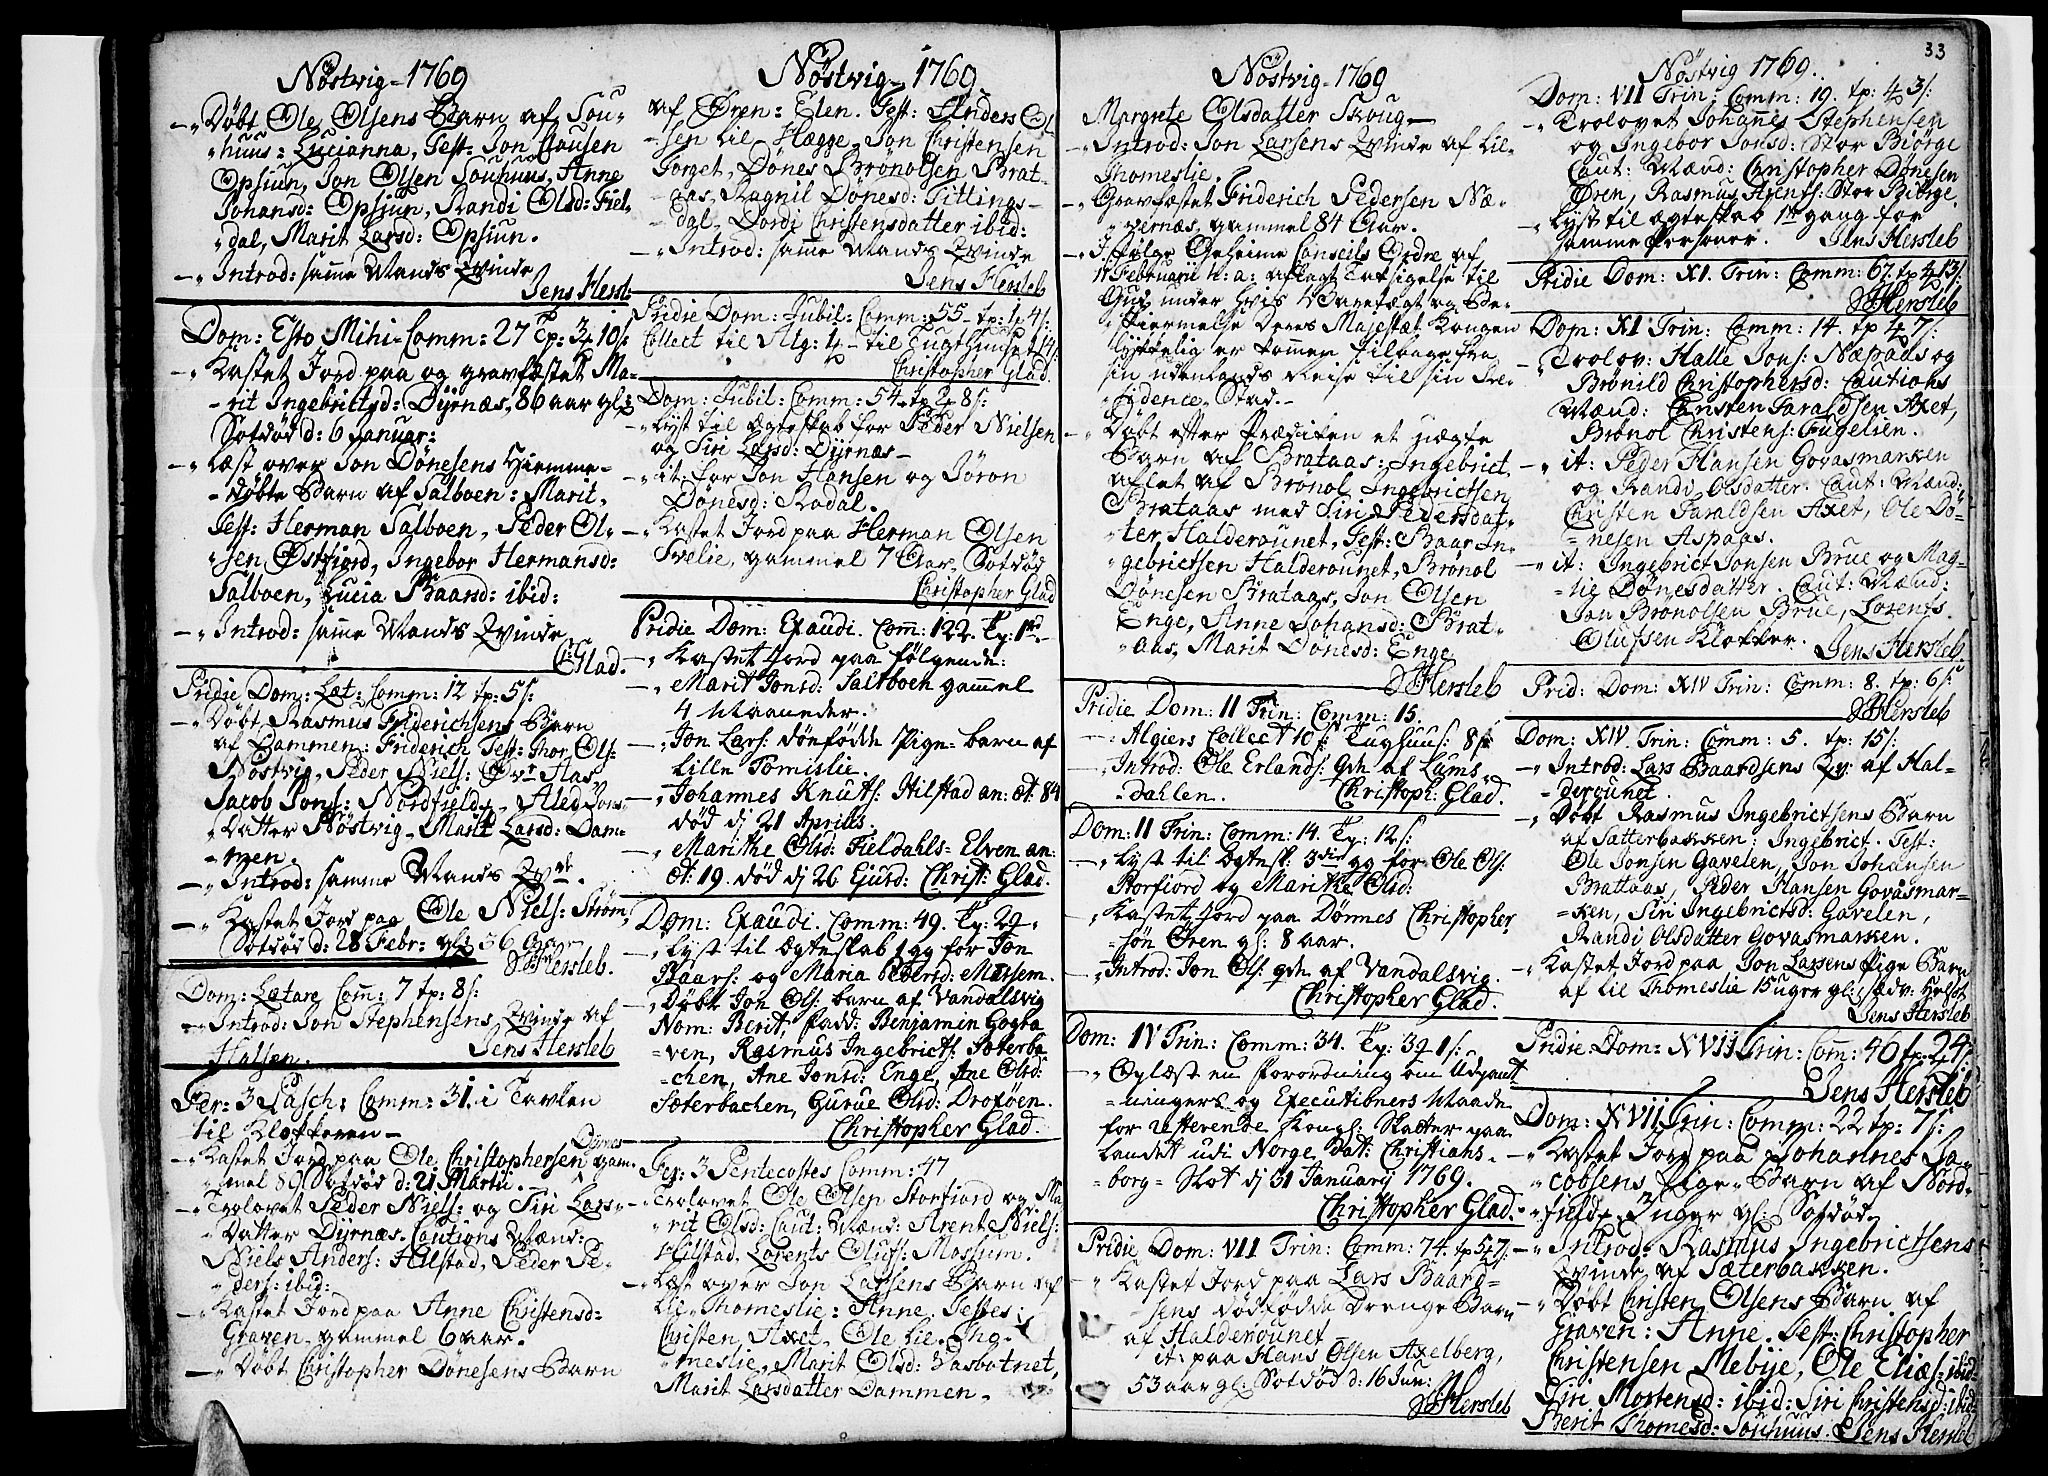 Nöstvig - 1769
Döbt Ole Olsens Barn af Sou-
huus: Lucianna, Test: Jon Clausen
Opsiun, Jon Olsen Souhuus, Anne
Johansd: Opsiun, Randi Olsd: Fiel-
dal, Marit Larsd: Opsiun.
Introd: samme Mands Qvinde
Jens Hersl:
Dom: Esto Mihi - Comm: 27 tp: 3 10 s:
Kastet Jord paa og gravfæstet Ma-
rit Ingebrictsd: Dÿrnæs, 86 aar gl:
Sotdöd d: 6 Januar:
Læst over Jon Dönesens Hiemme-
döbte Barn af Salboen: Marit,
Test: Herman Salboen, Peder Ol-
sen Østfiord, Ingebor Hermansd:
Salboen, Lucia Baarsd: ibid:
Introd: samme Mands Qvinde
C: Glad.
Pridie Dom: Læt: Comm: 12 tp: 5 s:
Döbt Rasmus Friderichsens Barn
af Dammen: Friderich Test: Thor Ols:
Nöstvig, Peder Niels: Øvr Aas
Jacob Jons: Nordfield, Aled Jons-
Datter Nöstvig - Marit Larsd: Dam-
men.
Introd: samme Mands Qvde.
Kastet Jord paa Ole Niels: Ström,
Sotdöd d: 28 Febr: gl: 36 Aar
J Hersleb.
Dom: Lætare Com: 7 tp: 8 s:
Introd: Jon Stephensens Qvinde af
Halsen. Jens Hersleb
Fer: 3 Pasch: Comm: 31. i Tavlen
til Klokkeren -
Kastet Jord paa Ole Christophersen Dÿrnes gam-
mel 89 Sotdöd d: 21 Martii.
Trolovet Peder Niels: og Siri Lars-
Datter Dÿrnæs. Cautions Mænd:
Niels Anders: Hilstad, Peder Pe-
ders: ibid:
Kastet Jord paa Anne Christensd:
Graven - gammel 6 aar.
Döbt Christopher Dönesens Barn
Nöstvig - 1769
af Øren: Elen. Test: Anders Ol-
sen Lil Hægge, Jon Christensen
Torget, Dönes Brönolsen Brat-
aas, Ragnil Dönesd: Tittings-
dal, Dordi Christensdatter ibid:
Introd: samme Mands Qvinde
Jens Hersleb
Pridie Dom: Jubil: Comm: 55 - tp: 1 4 s:
Collect til Alg: 4 - til Tugthuuset 14 s:
Christopher Glad.
Dom: Jubil: Comm: 54 - tp 2 8 s:
Lyst til Ægteskab for Peder Nielsen
og Siri Larsd: Dÿrnæs -
it: for Jon Hansen og Jöron
Dönesd: Rodal.
Kastet Jord paa Herman Olsen
Svelie, gammel 7 Aar, Sotdöd
Christopher Glad
Pridie Dom: Exaudi. Com: 122. Tp: 1
Kastet Jord paa fölgende:
Marit Jonsd: Saltboen gammel
4 Maaneder.
Jon Lars: dönfödde Pige-barn af
Lille Tomislie.
Johannes Knuts: Hilstad an: æt: 84
död dj 21 Aprilis.
Marithe Olsd: Fieldahls-Elven an:
æt: 19. död dj 26 Ejusd: Christ: Glad.
Dom: Exaudi. Comm: 49. Tp: 29
Lyst til Ægteskab 1 gg for Jon
Baars: og Maria Pedersd: Mersem.
Döbt Jon Ols: barn af Vandalsvig
Nom: Berit, fadd: Benjamin Gogsta-
ven, Rasmus Ingebricts: Sæterba-
chen, Ane Jonsd: Enge, Ane Olsd:
Sæterbachen, Gurue Olsd: Dröxöen.
Christopher Glad.
Fer: 3 Pentecostes Comm: 47
Trolovet Ole Olsen Storfiord og Ma-
rit Olsd: Caut: Mænd: Arent Niels:
Hilstad, Lorents Olufs: Mossum.
Læst over Jon Larsens Barn af
Lie Thomeslie: Anne. Testes:
Christen Axet, Ole Lie-Tho-
meslie, Marit Olsd: Vasbotnet,
Marit Larsdatter Dammen -
Nöstvig - 1769
Margrete Olsdatter Skoug -
Introd: Jon Larsens Qvinde af Lil-
Thomeslie.
Gravfæstet Friderich Pedersen Næ-
vernæs, gammel 84 Aar.
I fölge Geheime Conseils Ordre af
17 Februarii h: a: aflagt Taksigelse til
Gud, under hvis Varetægt og Be-
skiermelse Deres Majestæt Kongen
lykkelig er kommen tilbage fra
sin udenlands Reise til sin Re-
sidence-Stad. -
Döbt efter Prædiken et uægte
Barn af Brataas: Ingebrict,
aflet af Brönol Ingebrictsen
Brataas med Siri Pedersdat-
ter Halderounet, Test: Baar In-
gebrictsen Halderounet, Brönol
Dönesen Brataas, Jon Olsen
Enge, Anne Johansd: Brat-
aas, Marit Jonsd: Enge
J Hersleb
Pridie Dom: II Trin: Comm: 15.
Algiers Collect 10 s: Tugthuus: 8 s:
Introd: Ole Erlands: qde af Lums-
dahlen. Christoph: Glad.
Dom: II Trin: Comm: 14. Tp: 12 s:
Lyst til Ægtesk: 3die gg for Ole Ols:
Storfiord og Marithe Olsd:
Kastet Jord paa Dönnes Christopher-
sön Ören gl: 8 aar.
Introd: Jon Ols: qde af Vandalsvig.
Christopher Glad.
Dom: IV Trin: Comm: 34. Tp: 39 1 s:
Oplæst en Forordning om Udpant-
ningers og Executioners Maade
for resterende Kongl: Skatter paa
Landet udi Norge, dat: Christians-
borg-Slot dj 31 Januarij 1769.
Christopher Glad.
Pridie Dom: VII Trin: Comm: 74. tp 5 7 s:
Kastet Jord paa Lars Baard-
sens dödfödde Drenge Barn
af Halderounet
it: paa Hans Olsen Axelberg,
53 aar gl: Sotdöd d: 16 Jun:
J Hersleb
33
Nöstvig 1769.
Dom: VII Trin: Comm: 19. tp: 4 3 s:
Trolovet Johanes Stephensen
og Ingebor Jonsd: Stor Biörge
Caut: Mænd: Christopher Dönesen
Øren, Rasmus Arents: Stor Biörge.
Lyst til ægteskab 1te gang for
samme Personer. Jens Hersleb
Pridie Dom: XI. Trin: Comm: 67. tp 4 13 s:
J Hersleb
Dom: XI Trin: Comm: 14. tp 4 7 s:
Trolov: Halle Jons: Næpaas og
Brönild Christophersd: Cautions
Mænd: Christen Taraldsen Axet,
Brönol Christens: Fugelien.
it: Peder Hansen Govasmarken
og Randi Olsdatter. Caut: Mænd:
Christen Taraldsen Axet, Ole Dö-
nesen Aspaas.
it: Ingebrict Jonsen Brue og Mag-
lie Dönesdatter. Caut: Mænd:
Jon Brönolsen Brue, Lorents
Olufsen Klokker. Jens Hersleb
Prid: Dom: XIV Trin: Comm: 8. tp: 6 s:
J Hersleb
Dom: XIV. Trin: Comm: 5. tp: 15 s:
Introd: Lars Baardsens Qv: af Hal-
derounet.
Döbt Rasmus Ingebrictsens Barn
af Sætterbakken: Ingebrict. Test:
Ole Jonsen Gavelen, Jon Johansen
Brattaas, Peder Hansen Govasmar-
ken, Siri Ingebrictsd: Gavelen,
Randi Olsdatter Govasmarken.
Kastet Jord paa Jon Larsens Pige Barn
af lil Thomeslie 15 uger gl:
Jens Hersleb
Pridie Dom: XVII Trin: Com: 46 tp: 2 4 s:
Jens Hersleb
Dom: XVII Trin: Comm: 22 tp: 7 s:
Kastet Jord paa Johannes Ja-
cobsens Pige-Barn af Nord-
field 3 uger gl: Sotdöd
Introd: Rasmus Ingebrictsens
Qvinde af Sæterbakken.
Döbt Christen Olsens Barn af
Graven: Anne. Test: Christopher
Christensen Mebije, Ole Eliæs: ibid:
Siri Mortensd: ibid: Siri Christensd: ibid:
Berit Thomesd: Souhuus. Jens Hersleb